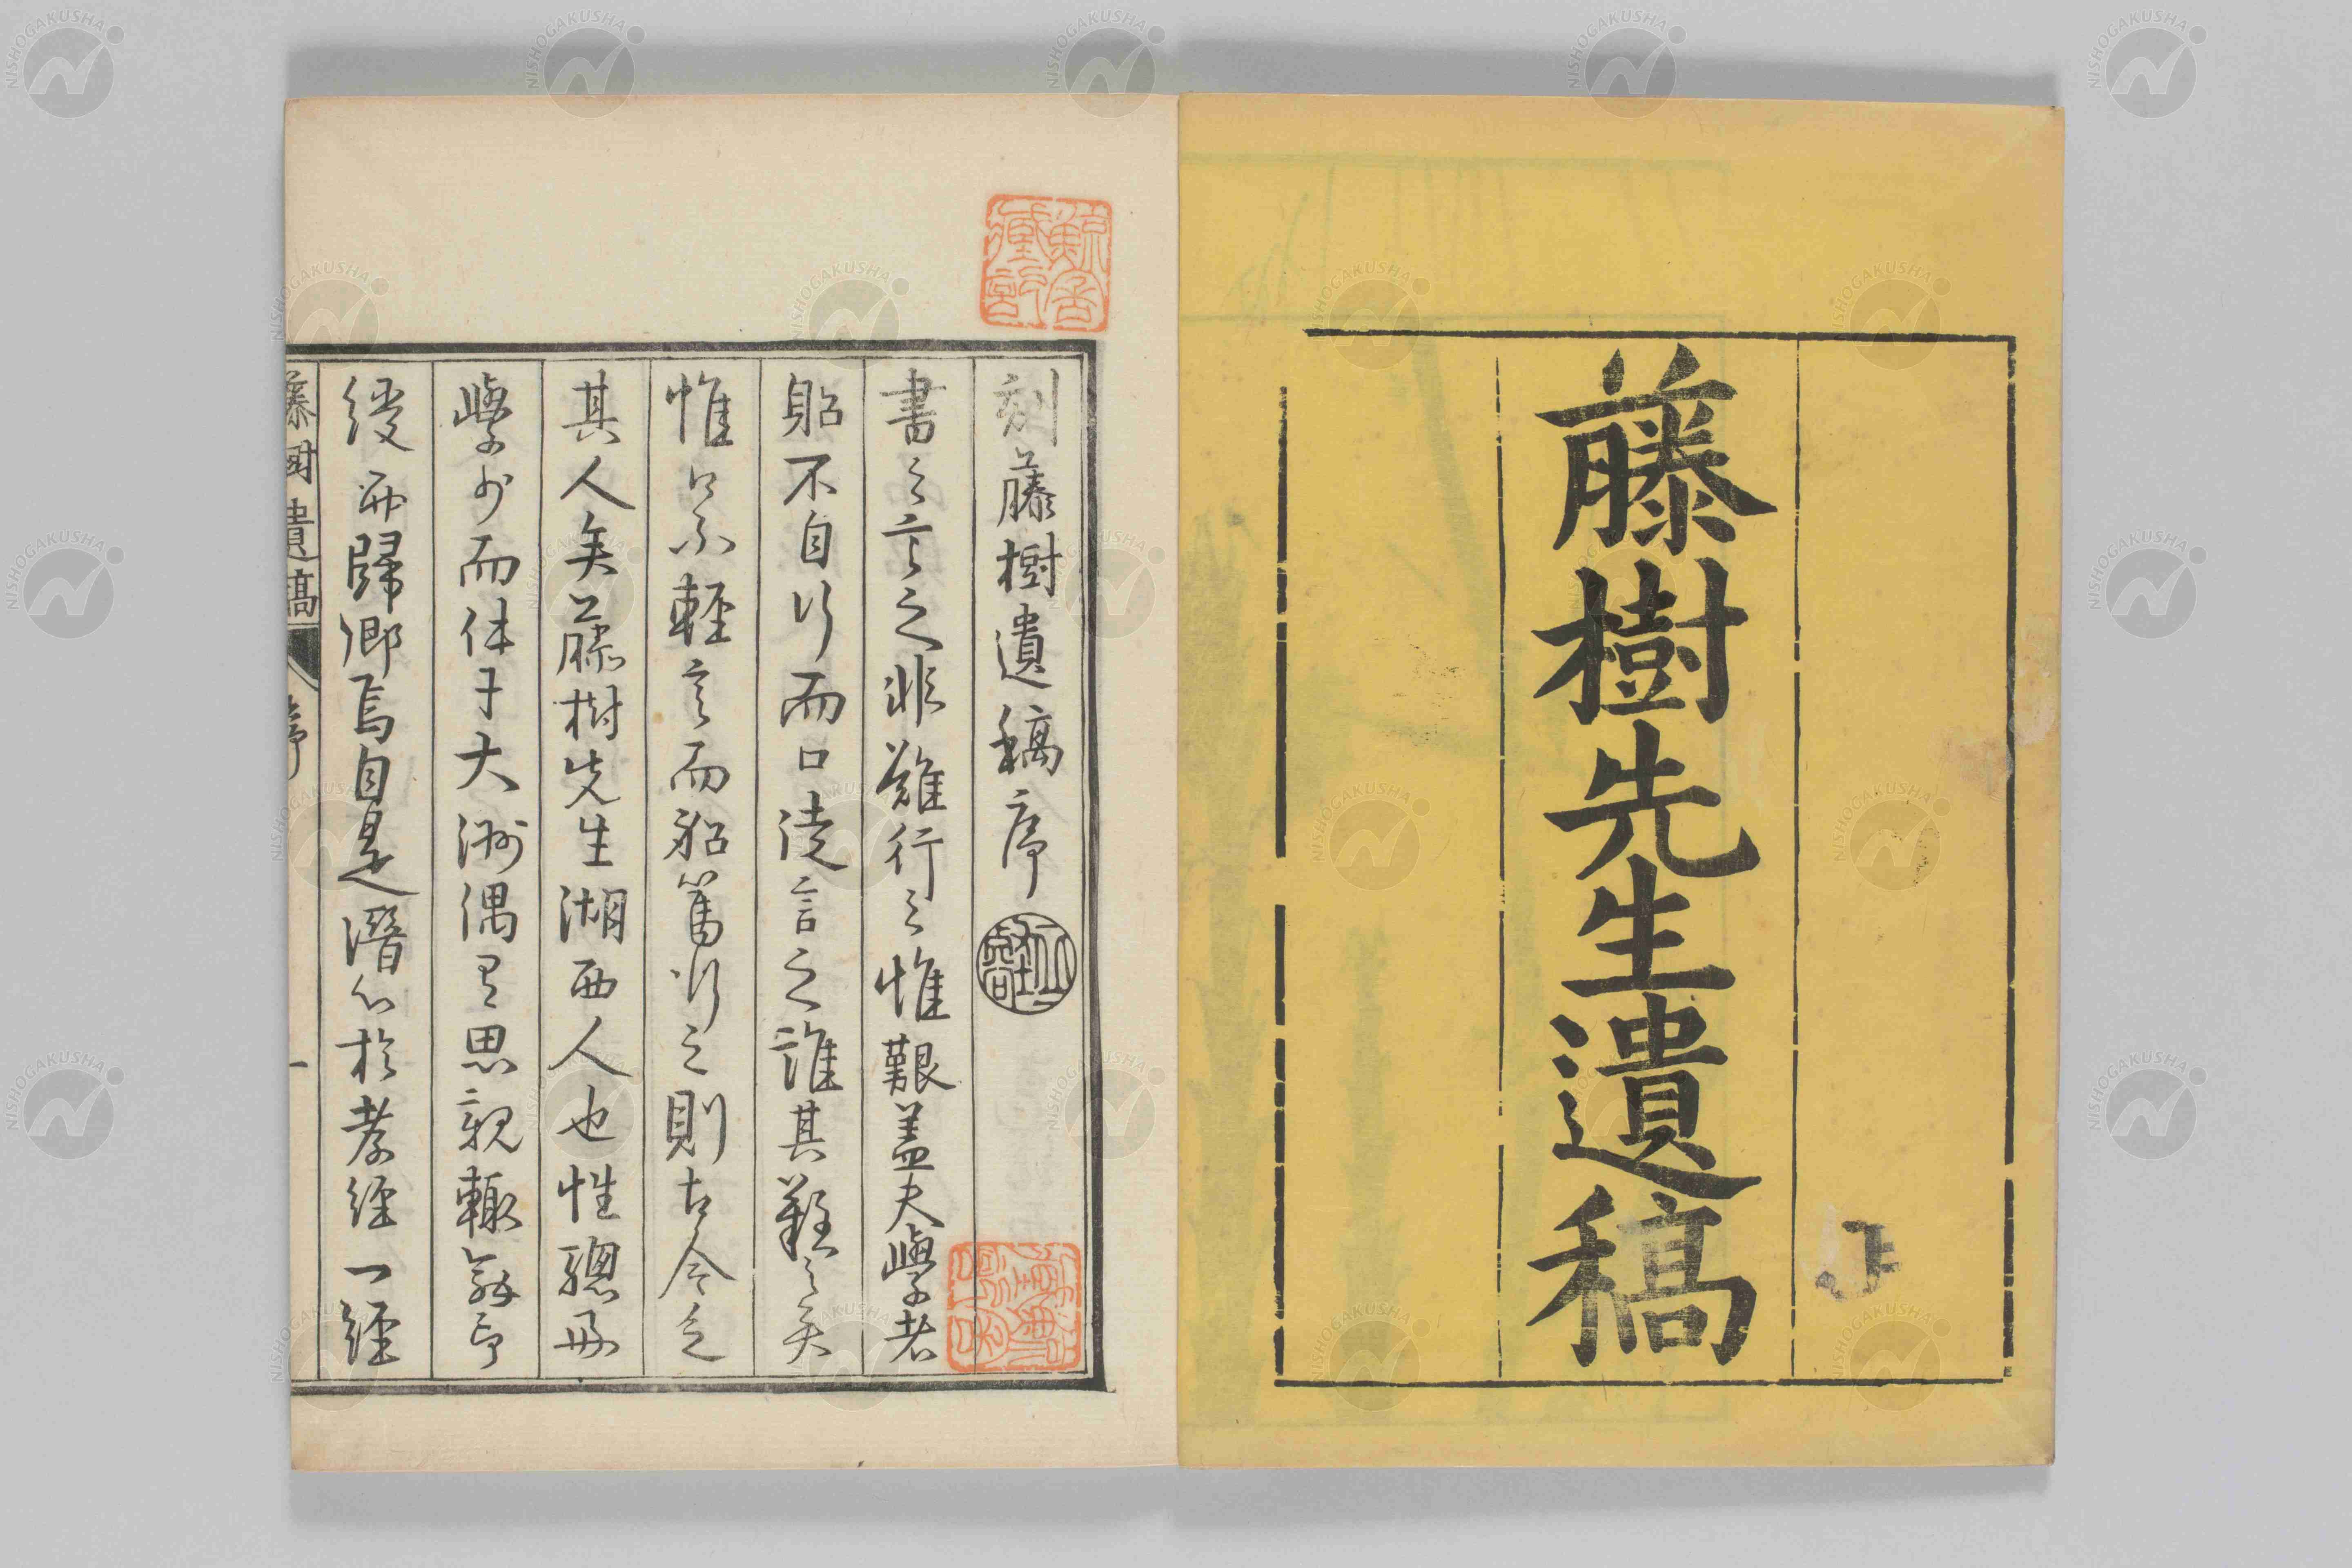 藤樹先生遺稿
刻藤樹遺稿序
書之言之非難行之惟艱蓋夫學者
躬不自行而口徒言之誰其難之矣
惟口不輕言而躬篤行之則古今乏
其人矣藤樹先生湖西人也性聰
學而仕于大洲偶思親輙辭印
綬而歸鄉焉自是潛心於孝經一經
遺稿
序
一
NISHOGAKUSHA